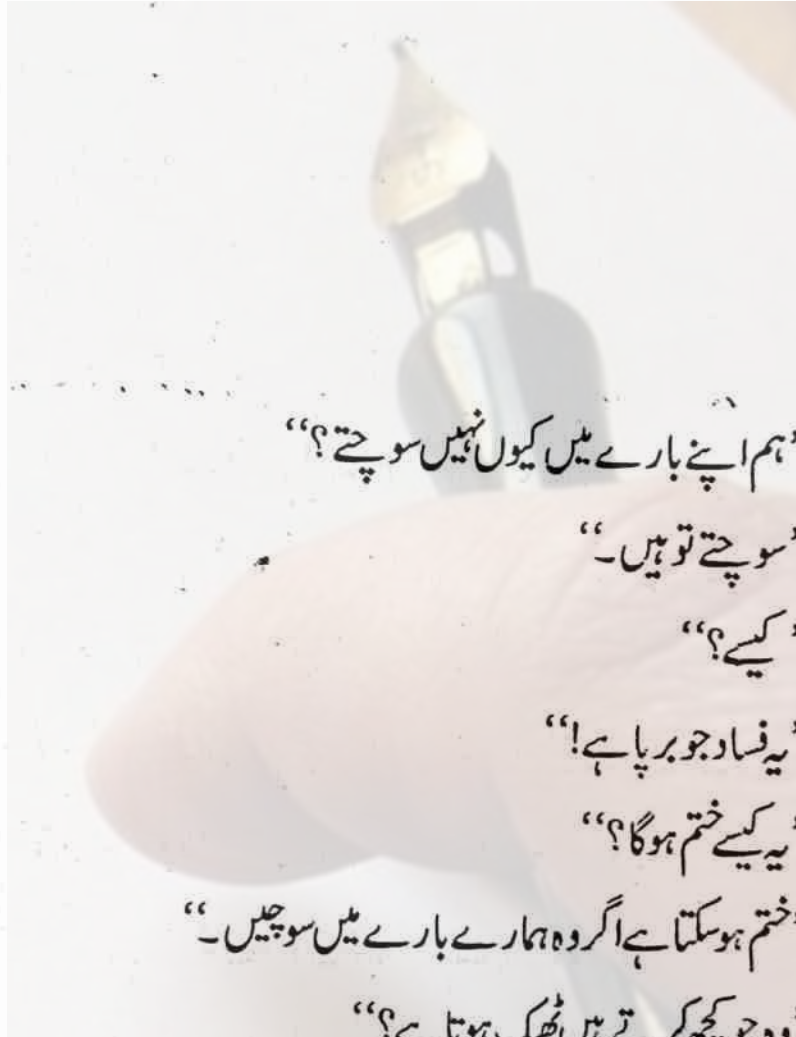 ’ہم اپنے بارے میں کیوں نہیں سوچتے؟‘‘
’سوچتے تو ہیں۔‘‘
’کیسے؟‘‘
’یہ فساد جو برپا ہے!‘‘
’یہ کیسے ختم ہوگا؟‘‘
’ختم ہوسکتا ہے اگر وہ ہمارے بارے میں سوچیں۔‘‘
وہ جو کچھ کرتے ہیں ٹھیک ہوتا ہے؟‘‘